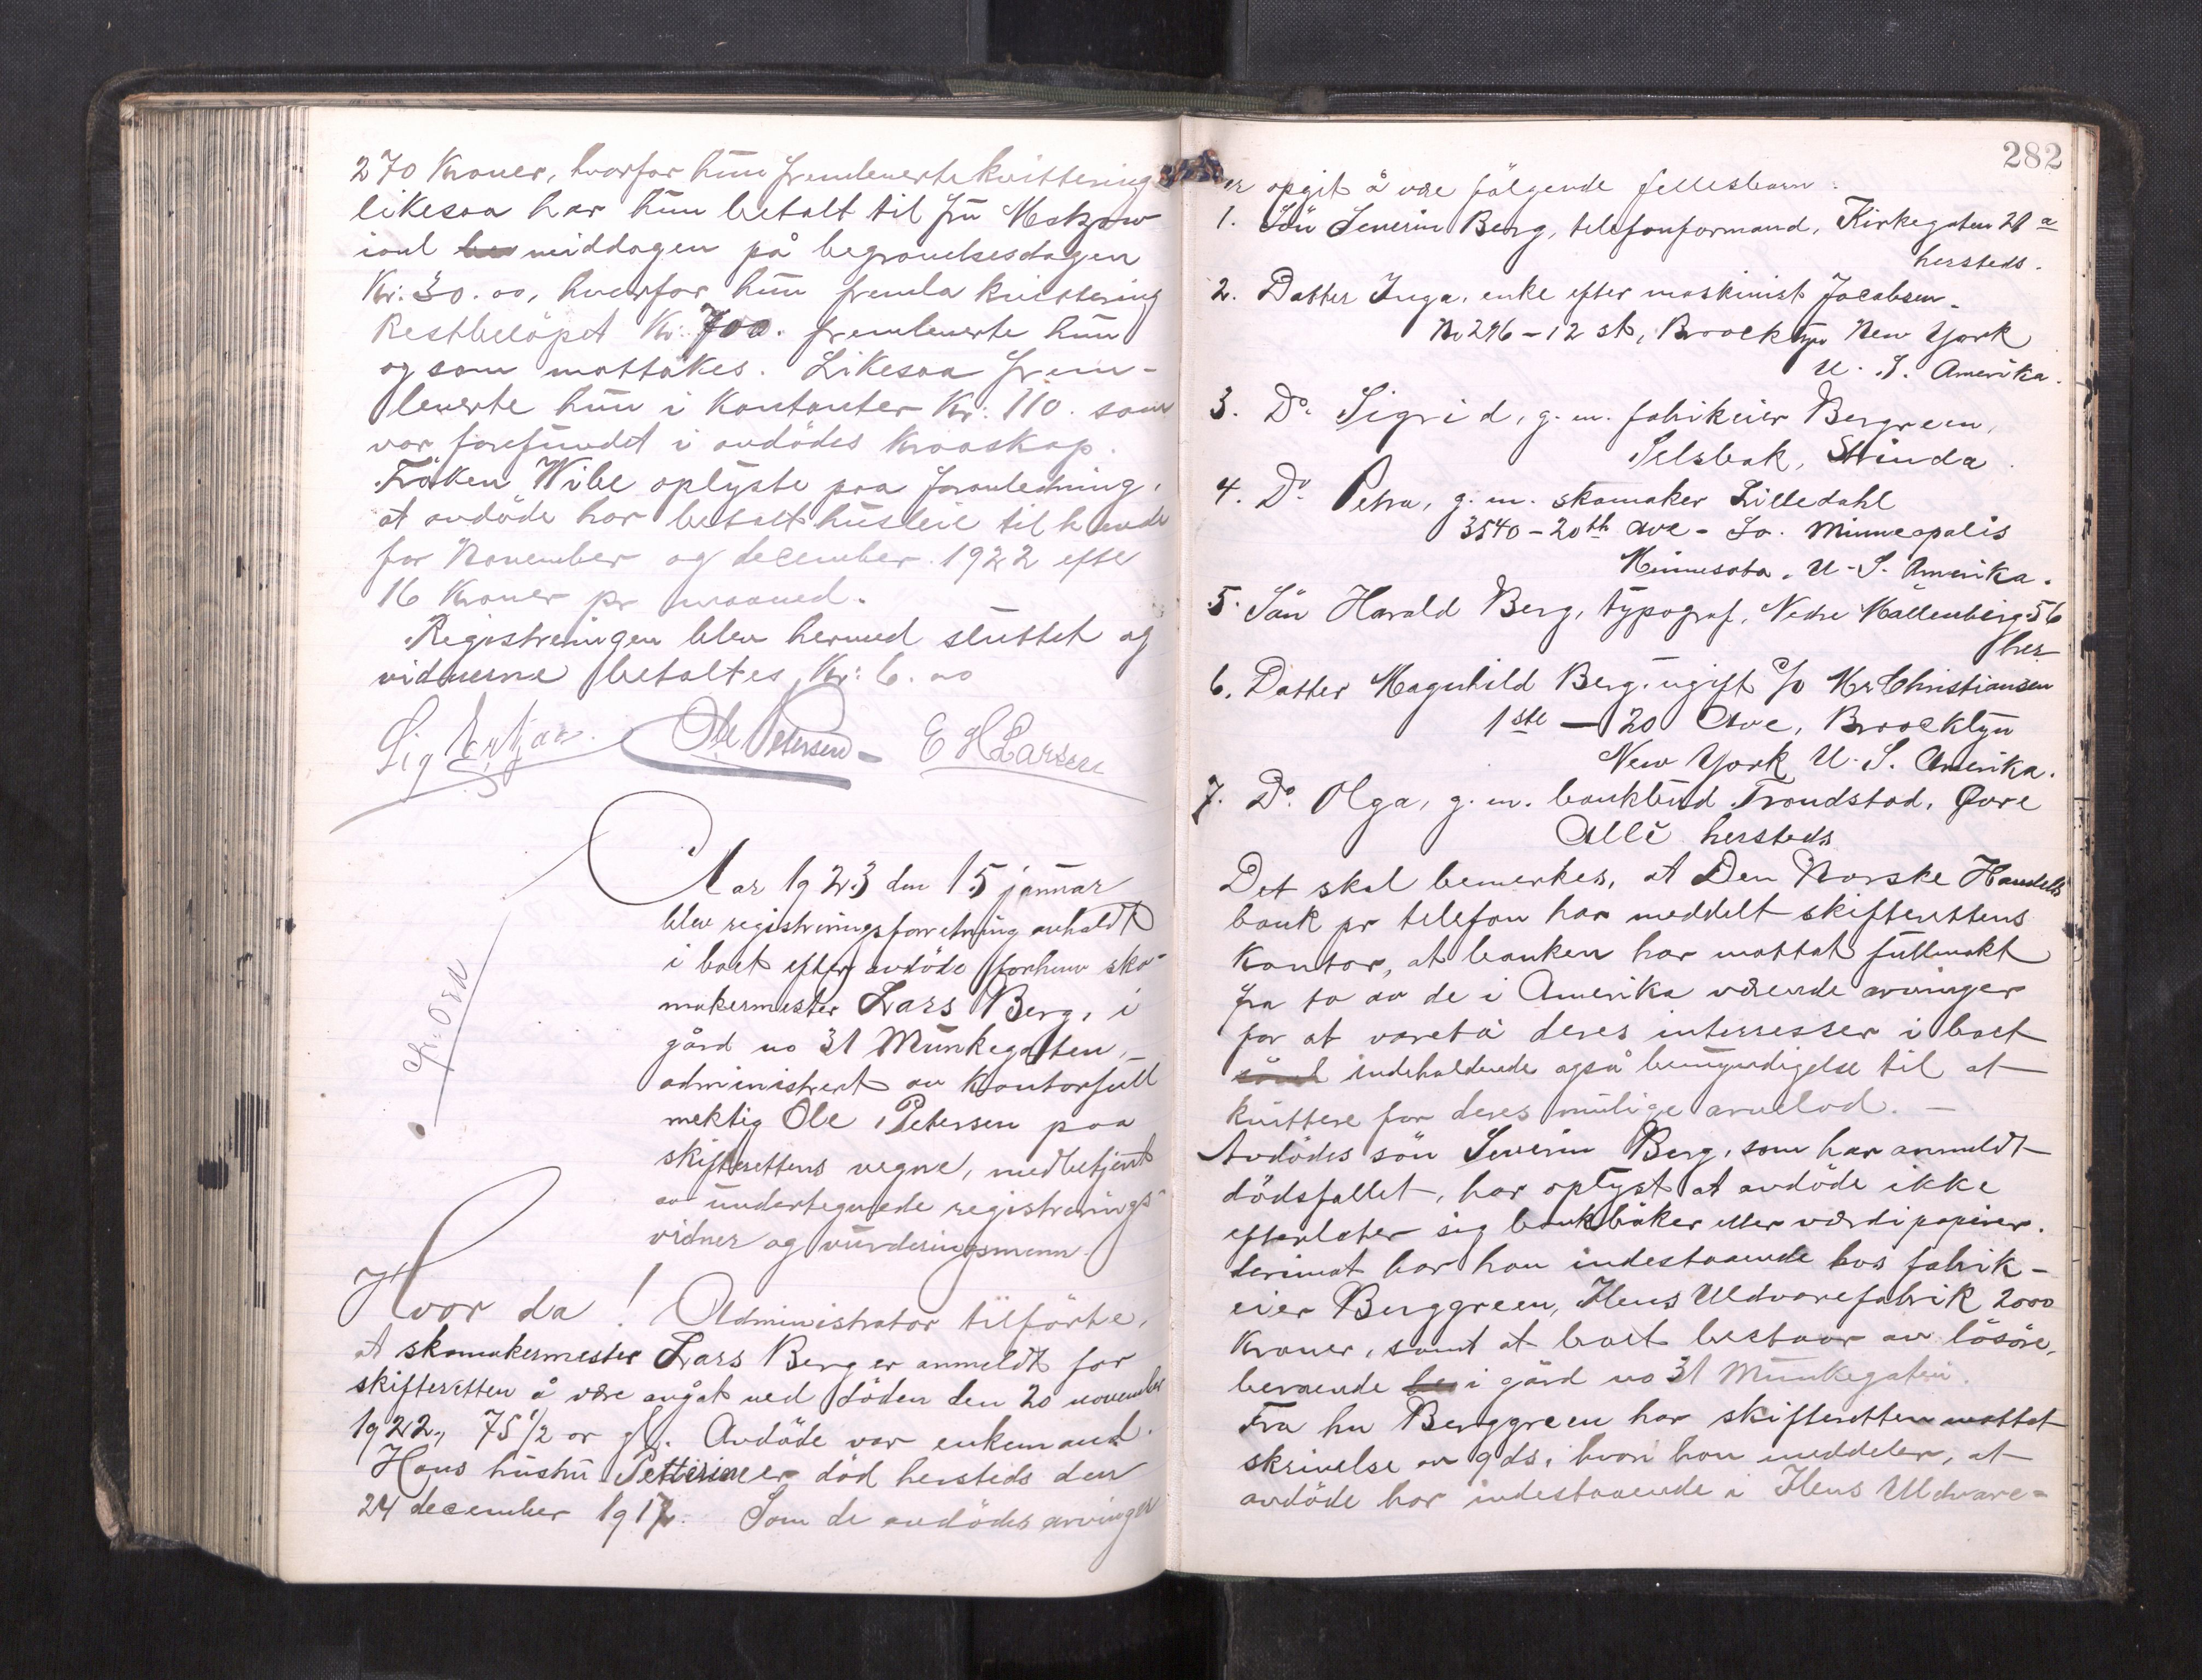 270 Kroner, hvorfor hun fremleverte kvittering
likesaa har hun betalt til fru
med ~~be~~ middagen på begravelsesdagen
Kr: 30.00, hvorfor hun fremla kvittering
Restbelöpet Kr: 700. fremleverte hun
og som mottokes. Likesaa frem-
leverte hun i Kontanter Kr: 110. som
var forefundet i avdödes
Fröken Wibe oplyste paa foranledning,
at avdöde har betalt husleie til hende
for November og december 1922 efter
16 Kroner pr maaned.
Registreringen blev hermed sluttet og
vidnerne betaltes Kr: 6.00
Sig Ole Petersen - E H Larsen
Aar 1923 den 15 januar
blev registreringsforretning avholdt
i boet efter avdöde forhenv sko-
makermester Lars Berg, i
gård no 31 Munkegaten,
administrert av Kontorfull
mektig Ole Petersen paa
skifterettens vegne, medbetjent
av undertegnede registrerings
vidner og vurderingsmenn.
Hvor da! Administrator tilförte,
at skomakermester Lars Berg er anmeldt for
skifteretten å være avgåt ved döden den 20 november
1922, 75 1/2 år gl. Avdöde var enkemand.
Hans hustru Petterine er död hersteds den
24 december 1917. Som de avdödes arvinger
282
er opgit å være følgende fellesbarn:
1. Sön Severin Berg, telefonformand, Kirkegaten 21 a
hersteds.
2. Datter Inga, enke efter maskinist Jacobsen.
No 296 - 12 st, Broocklyn New York
U. S. Amerika.
3. Do. Sigrid, g. m. fabrikeier Bergreen,
Selsbak, Strinda.
4. Do Petra, g. m. skomaker Lilledahl
3540 - 20th ave - So. Minneapolis
Minnesota, U. S. Amerika.
5. Sön Harald Berg, typograf, Nedre Möllenberg 56
her
6. Datter Magnhild Berg, ugift c/o Mr Christiansen
1ste - 20 Ave, Broocklyn
New York U. S. Amerika.
7. Do. Olga, g. m. bankbud Trondstad, Øvre
Allè hersteds
Det skal bemerkes, at Den Norske Handels
bank pr telefon har meddelt skifterettens
Kontor, at banken har mottat fullmakt
fra to av de i Amerika værende arvinger
for at vareta deres interesser i boet
indeholdende også bemyndigelse til at
kvittere for deres mulige arvelod. -
Avdödes sön Severin Berg, som har anmeldt
dödsfallet, har oplyst at avdöde ikke
efterlater sig bankböker eller værdipapirer.
derimot har han indestaaende hos fabrik-
eier Berggreen, Ilens Uldvarefabrik 2000
Kroner, samt at boet bestaar av lösöre,
beroende ~~be~~ i gård no 31 Munkegaten.
Fra hr Berggreen har skifteretten mottat
skrivelse av 9 ds, hvori han meddeler, at
avdöde har indestaaende i Ilens Uldvare=